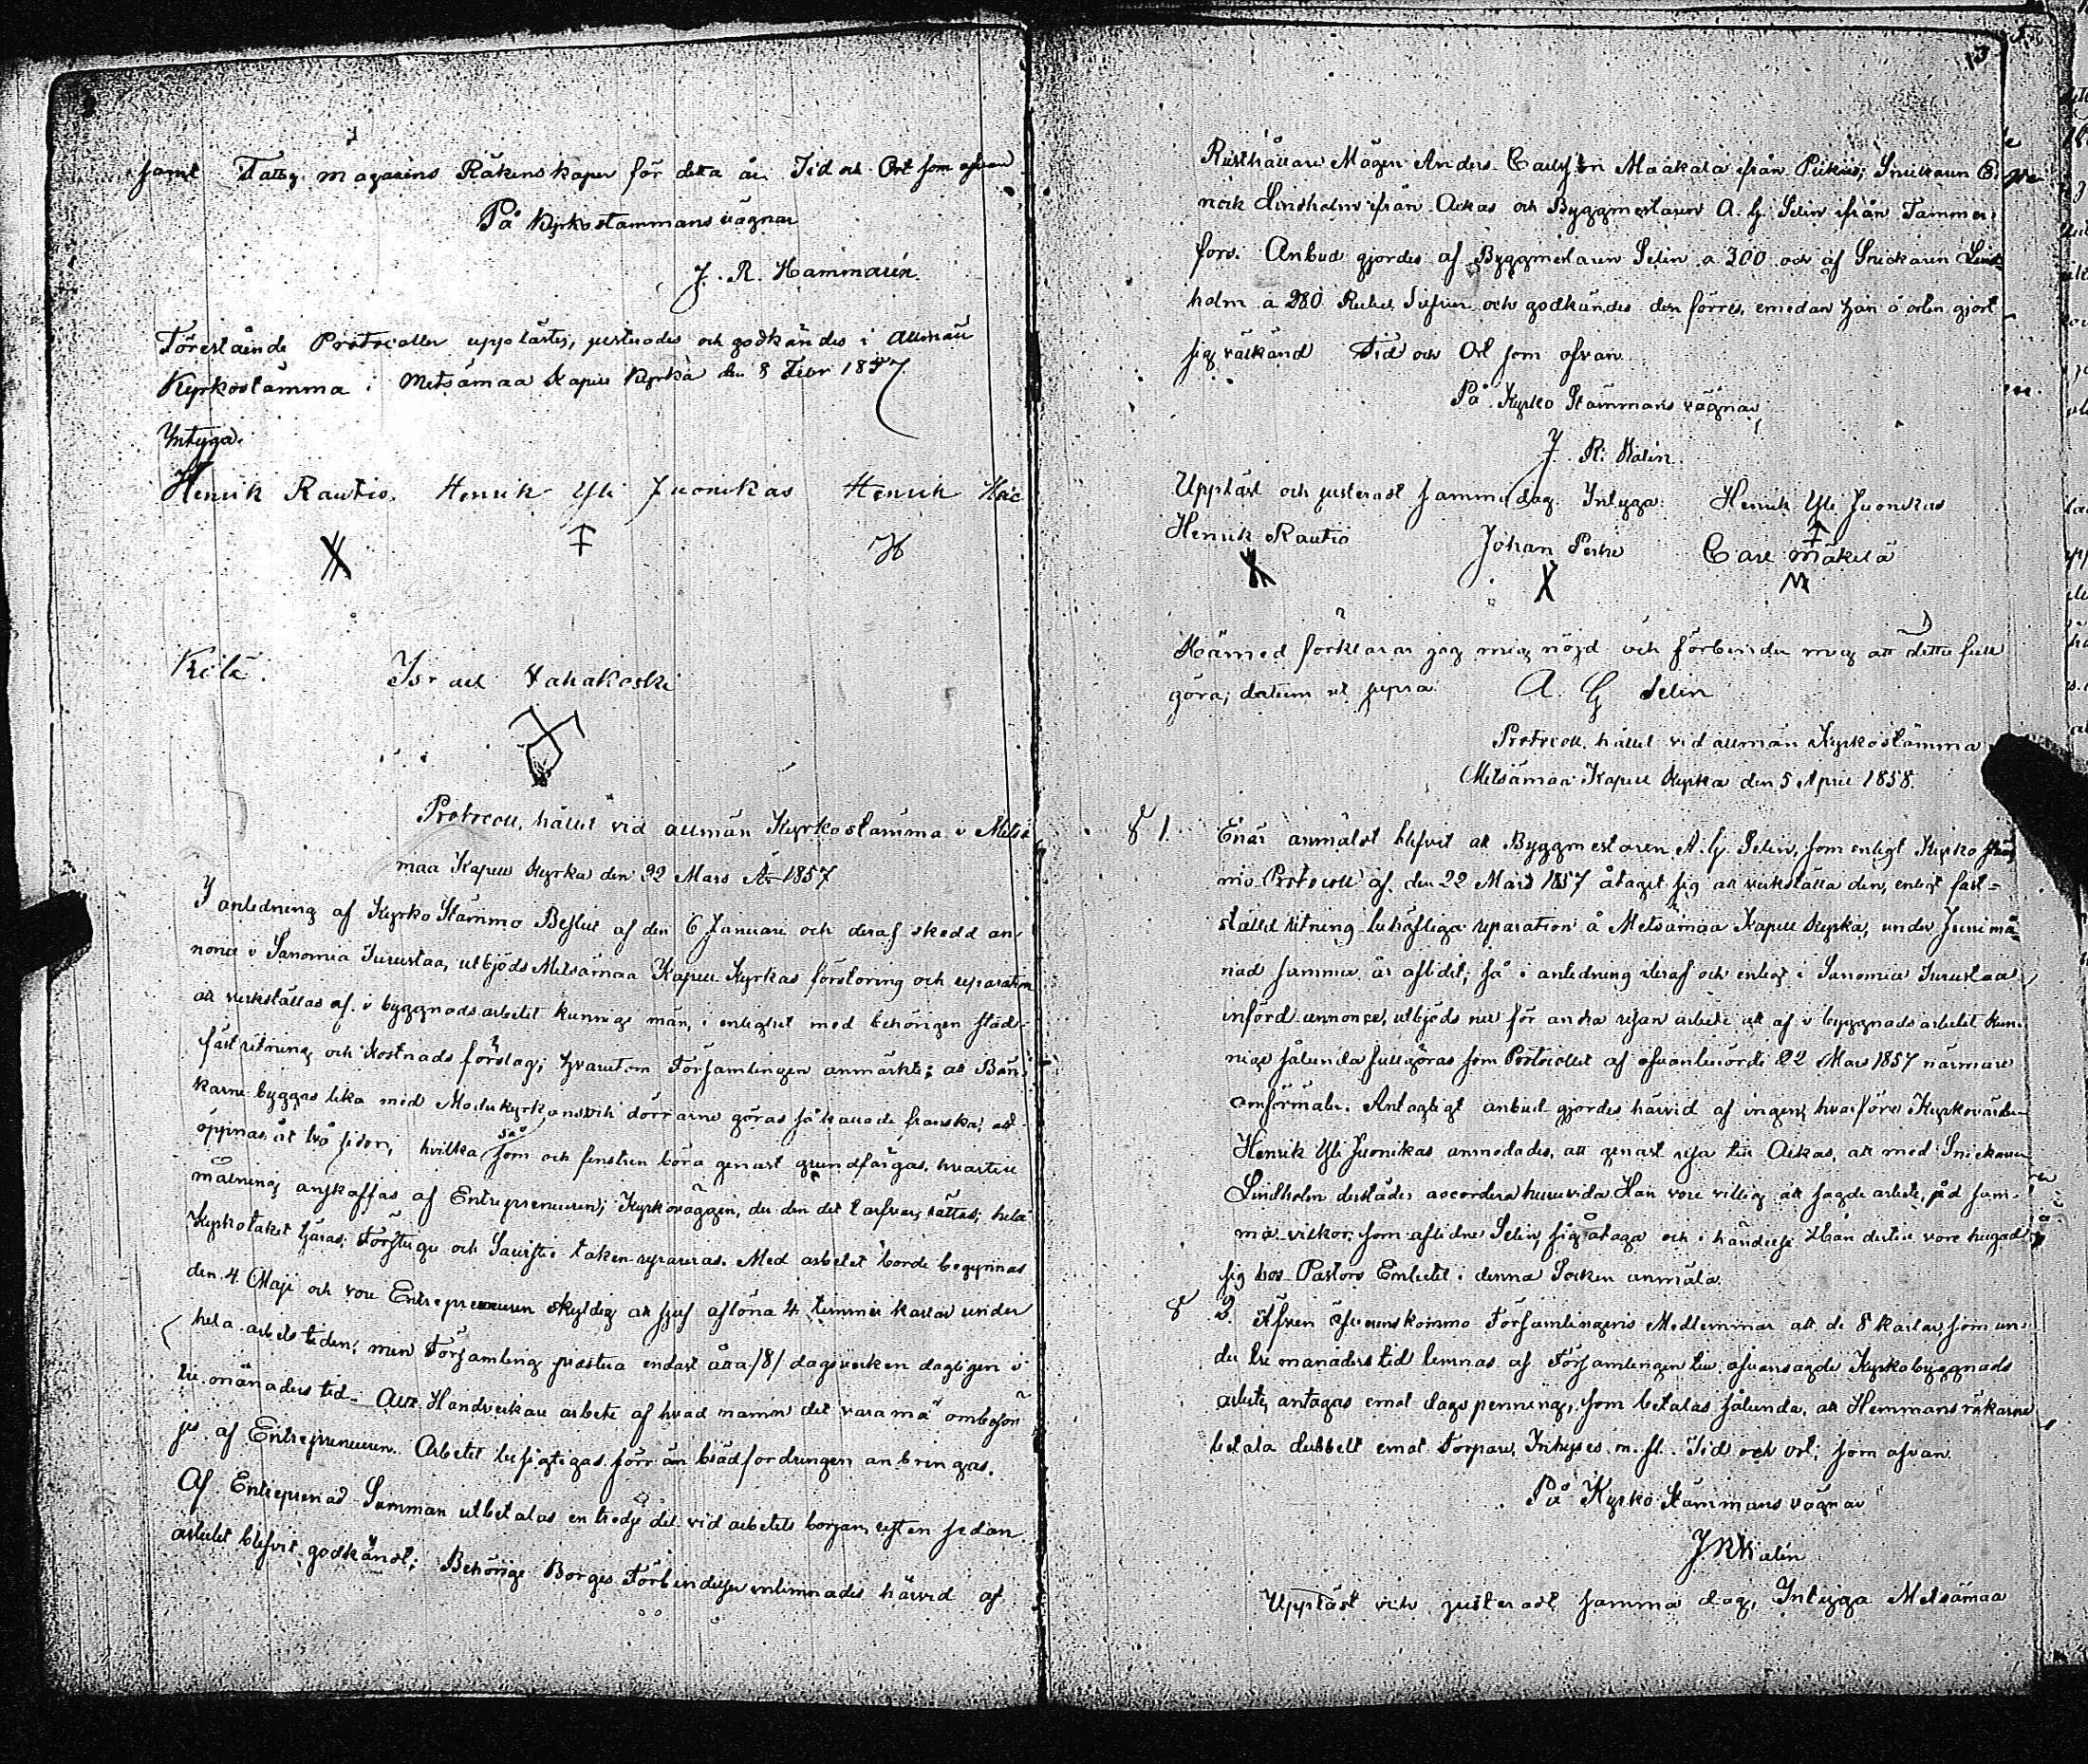 samt Fattig magasins Räkenskaper för detta år. Tid och Ort som ofvan
På Kyrkostämmans vägnar
J. R. Hammarén
Förestående Protocoller upplästes, justerades och godkändes i allmän
Kyrkostämma i Metsämaa Kapell Kyrka den 8 Febr 1857
Intyga.
Henrik Rautio. Henrik Yli Juonikas Henrik Hei
H
Kilä. Israel Vahakoski
Protocoll, hållit vid allmän Kyrkostämma i Metsä
maa Kapell Kyrka den 22 Mars År 1857
I anledning af Kyrko Stämmo Beslut af den 6 Januari och deraf skedd an
nonce i Sanomia Turustaa, utbjöds Metsämaa Kapell Kyrkas förstoring och reparation
att verkställas af i byggnadsarbetet kunnige män, i enlighet med behörigen stad
fäst ritning och Kostnads förslag; hvarutom Församlingen anmärkte; att Bän
karne byggas lika med Moderkyrkans och dörrarne göras så kallade franska, att
öppnas åt två sidor, hvilka så som och fenstren böra genast grundfärgas, hvartill
målning anskaffas af Entrepreneuren; Kyrkoväggen, der den det tarfvar, rättas; hela
Kyrkotaket tjäras; Förstugu och Sacristie taken repareras. Med arbetet borde begynnas
den 4 Maji och vore Entrepreneuren skyldig att sjelf aflöna 4 timmer karlar under
hela arbets tiden; men Församling prestera endast åtta /8/ dagsverken dagligen i
tre månaders tid. Allt Handverkare arbete af hvad namn det vara må ombesör
jes af Entrepreneuren. Arbetet besigtigas förr än brädfordringen anbringas.
Af Entreprenad Summan utbetalas en tredje del vid arbetets början, resten sedan
arbetet blifvit godkändt; Behörige Borges Förbindelser inlemnades härvid af
13
Rusthållare Mågen Anders Carlsson Maakala ifrån Pikis; Snickaren
Lindholm ifrån Ackas och Byggmestaren A. G. Selin ifrån Tammer
fors. Anbud gjordes af Byggmestaren Selin a 300 och af Snickaren Lind
holm a 280 Rubel Silfver och godkändes den förres, emedan han å orten gjort
sig välkänd Tid och Ort som ofvan.
På Kyrko Stämmans vägnar
J. R. Walén.
Uppläst och justerast samma dag. Intyga. Henrik Yli Juonikas
Henrik Rautio Johan Perhe Carl Mäkelä
M
Härmed förklarar jag mig nöjd och förbinder mig att detta full
göra; datum ut supra. A. G Selin
Protocoll, hållit vid allmän Kyrkostämma
Metsämaa Kapell Kyrka den 5 April 1858.
§ 1. Enär anmäldt blifvit att Byggmestaren A. G. Selin, som enligt Kyrko stäm
mo Protocoll af den 22 Mars 1857 åtagit sig att verkställa den, enligt fast-
ställd ritning behöfliga reparation å Metsämaa Kapell Kyrka, under Juni må
nad samma år aflidit; så i anledning deraf och enligt i Sanomia Turustaa
införd annonce, utbjöds nu för andra resan arbete att af i byggnads arbetet kun
nige sålunda fullgöras som Protocollet af ofvanberörde 22 Mars 1857 närmare
omförmäler. Antagligt anbud gjordes härvid af ingen, hvarföre Kyrkovärden
Henrik Yli Juonikas anmodades, att genast resa till Ackas, att med Snickaren
Lindholm derstädes accordera huruvida Han vore villig att sagde arbete, på sam
ma vilkor, som aflidne Selin, sig åtaga och i händelse Han dertill vore hugad
sig hos Pastors Embetet i denna Socken anmäla.
§ 2. Äfven öfverenskommo Församlingens Medlemmar att de 8 karlar, som un
der tre månaders tid lemnas af Församlingen till ofvansagde Kyrkobyggnads
arbete, antagas emot dagspenning, som betalas sålunda, att Hemmans rökarne
betala dubbelt emot Torpare, Inhyses m. fl. Tid och ort, som ofvan.
På Kyrko Stämmans vägnar
J R Walén
Uppläst och justerast samma dag, Intyga Metsämaa